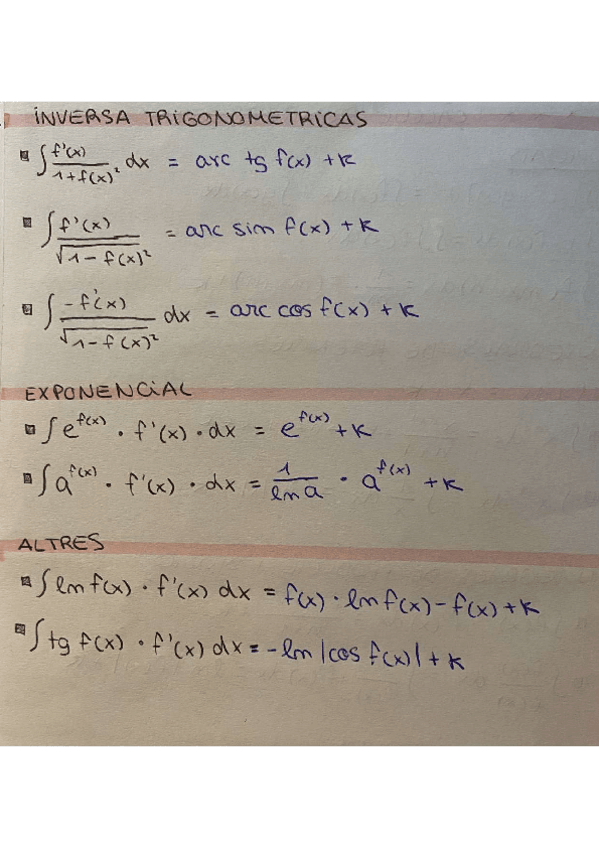 INVERSA TRIGONOMETRICAS
∫ f'(x) / 1+f(x)² dx = arc tg f(x) + K
∫ f'(x) / √1 - f(x)² = arc sin f(x) + K
∫ -f'(x) / √1 - f(x)² dx = arc cos f(x) + K
EXPONENCIAL
∫ e^f(x) · f'(x) · dx = e^f(x) + K
∫ a^f(x) · f'(x) · dx = 1 / ln a · a^f(x) + K
ALTRES
∫ ln f(x) · f'(x) dx = f(x) · ln f(x) - f(x) + K
∫ tg f(x) · f'(x) dx = - ln |cos f(x)| + K